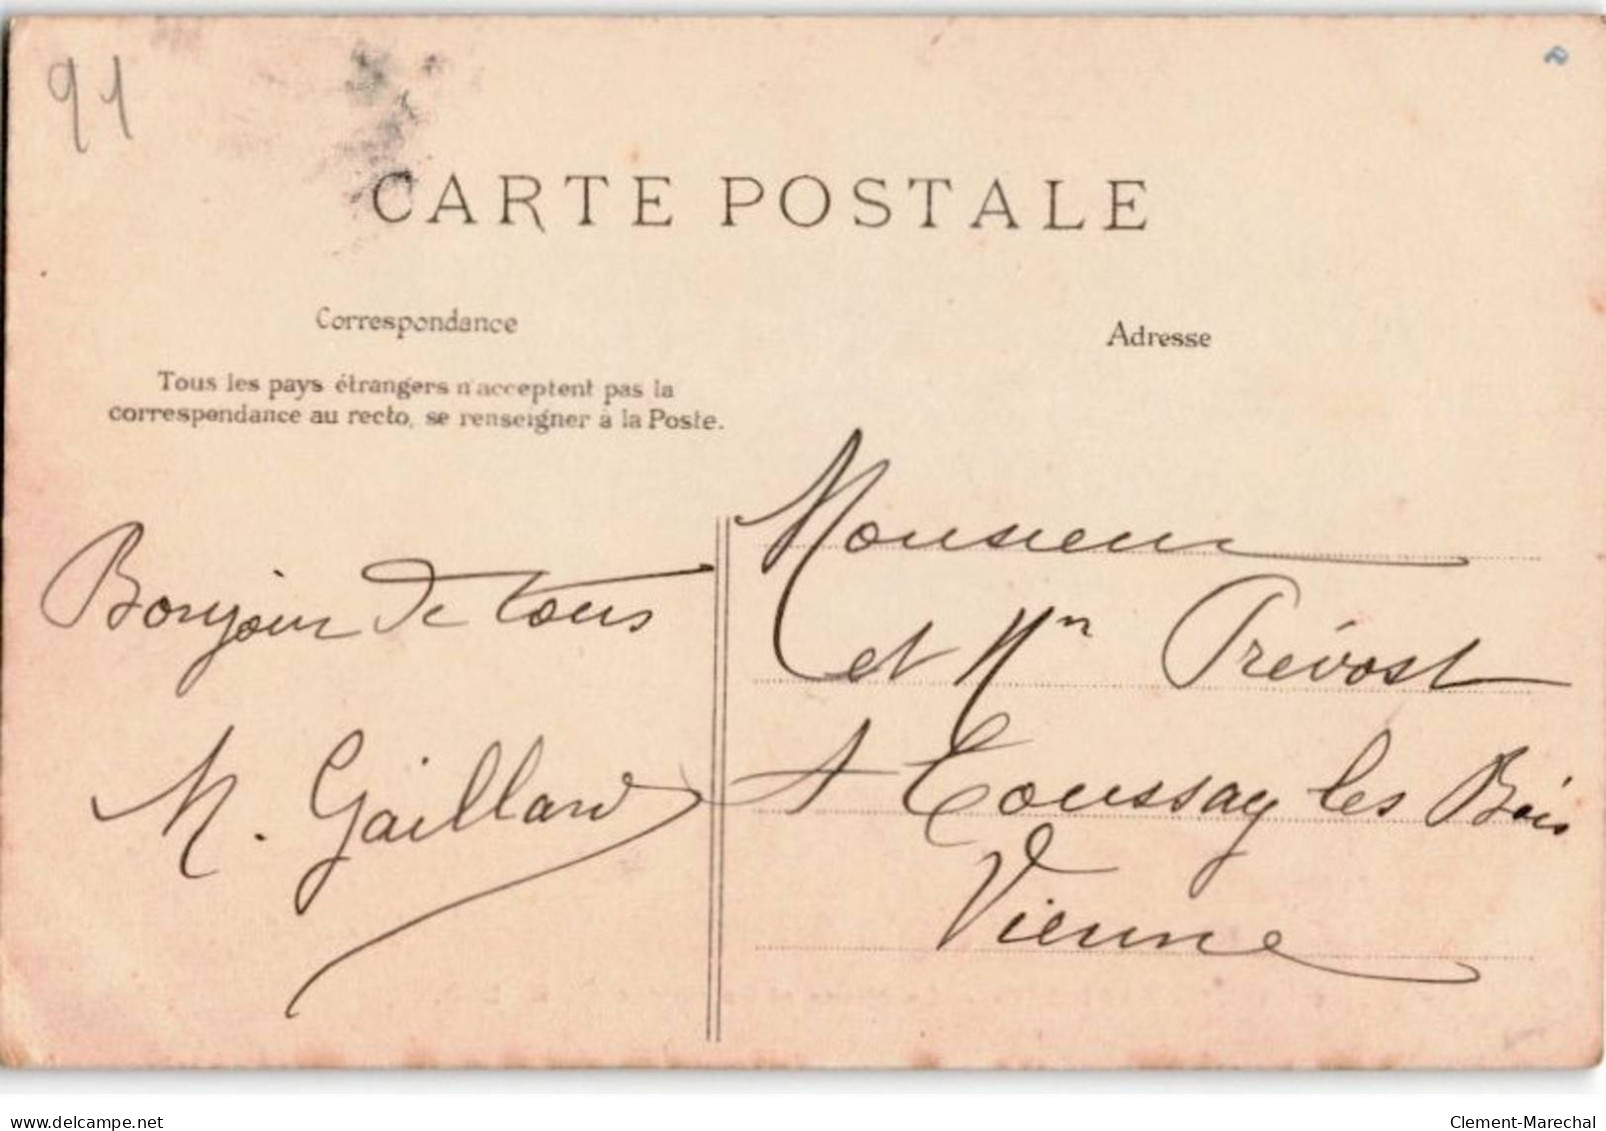 91
CARTE POSTALE
Correspondance
Tous les pays étrangers n'acceptent pas la
correspondance au recto, se renseigner à la Poste.
Bonjour de tous
M. Gaillard
Adresse
Monsieur
et Mm Prévost
à Toussay les Bois
Vienne
delcampe.net
Clement-Marechal